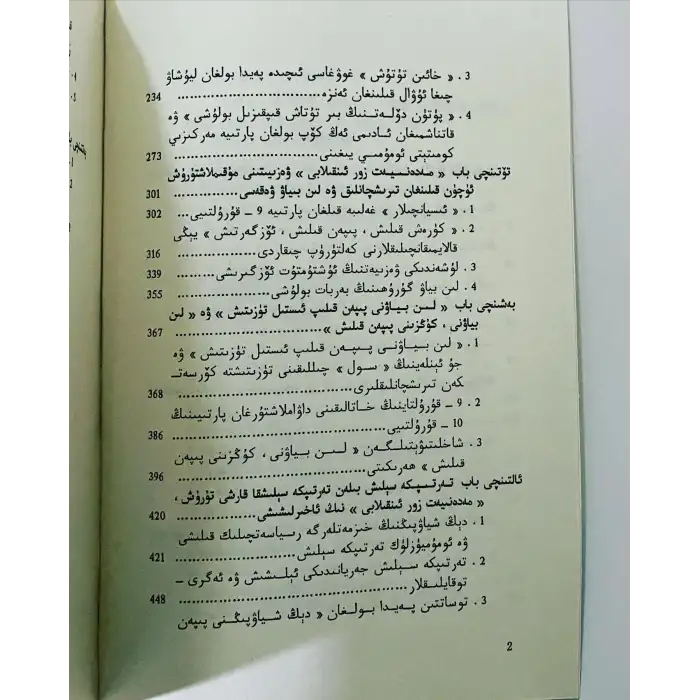 3 . « خائىن تۇتۇش » غوۋغاسى ئىچىدە پەيدا بولغان ليۇشاۋ
چىغا ئۇۋال قىلىنغان ئەنزە ................................ 234
4 . « پۈتۈن دۆلەتنىڭ بىر تۇتاش قىپقىزىل بولۇشى » ۋە
قاتناشمىغان ئادىمى ئەڭ كۆپ بولغان پارتىيە مەركىزىي
كومىتېتى ئومۇمىي يىغىنى ................................ 273
تۆتىنچى باب « مەدەنىيەت زور ئىنقىلابى » ۋەزىيىتىنى مۇقىملاشتۇرۇش
ئۈچۈن قىلىنغان تىرىشچانلىق ۋە لىن بىياۋ ۋەقەسى ........ 301
1 . « ئىسيانچىلار » غەلىبە قىلغان پارتىيە 9 ـ قۇرۇلتىيى ... 302
2 . « كۈرەش قىلىش ، پىپەن قىلىش ، ئۆزگەرتىش » يېڭى
قالايمىقانچىلىقلارنى كەلتۈرۈپ چىقاردى ................ 316
3 . لۇشەندىكى ۋەزىيەتنىڭ ئۇشتۇمتۇت ئۆزگىرىشى ......... 339
4 . لىن بىياۋ گۇرۇھىنىڭ بەربات بولۇشى ................ 355
بەشىنچى باب « لىن بىياۋنى پىپەن قىلىپ ئىستىل تۈزىتىش » ۋە « لىن
بىياۋنى ، كۇڭزىنى پىپەن قىلىش » ........................ 367
1 . « لىن بىياۋنى پىپەن قىلىپ ئىستىل تۈزىتىش » ۋە
جۇ ئېنلەينىڭ « سول » چىللىقنى تۈزىتىشتە كۆرسەتـ
كەن تىرىشچانلىقلىرى ................................ 368
2 . 9 ـ قۇرۇلتاينىڭ خاتالىقىنى داۋاملاشتۇرغان پارتىيىنىڭ
10 ـ قۇرۇلتىيى ................................ 386
3 . شاخلىتىۋېتىلگەن « لىن بىياۋنى ، كۇڭزىنى پىپەن
قىلىش » ھەرىكىتى ................................ 396
ئالتىنچى باب تەرتىپكە سېلىش بىلەن تەرتىپكە سېلىشقا قارشى تۇرۇش ،
« مەدەنىيەت زور ئىنقىلابى » نىڭ ئاخىرلىشىشى ........ 420
1 . دېڭ شياۋپىڭنىڭ خىزمەتلەرگە رىياسەتچىلىك قىلىشى
ۋە ئومۇميۈزلۈك تەرتىپكە سېلىش ................ 421
2 . تەرتىپكە سېلىش جەريانىدىكى ئېلىشىش ۋە ئەگرى ـ
توقايلىقلار ................................ 448
3 . توساتتىن پەيدا بولغان « دېڭ شياۋپىڭنى پىپەن
2